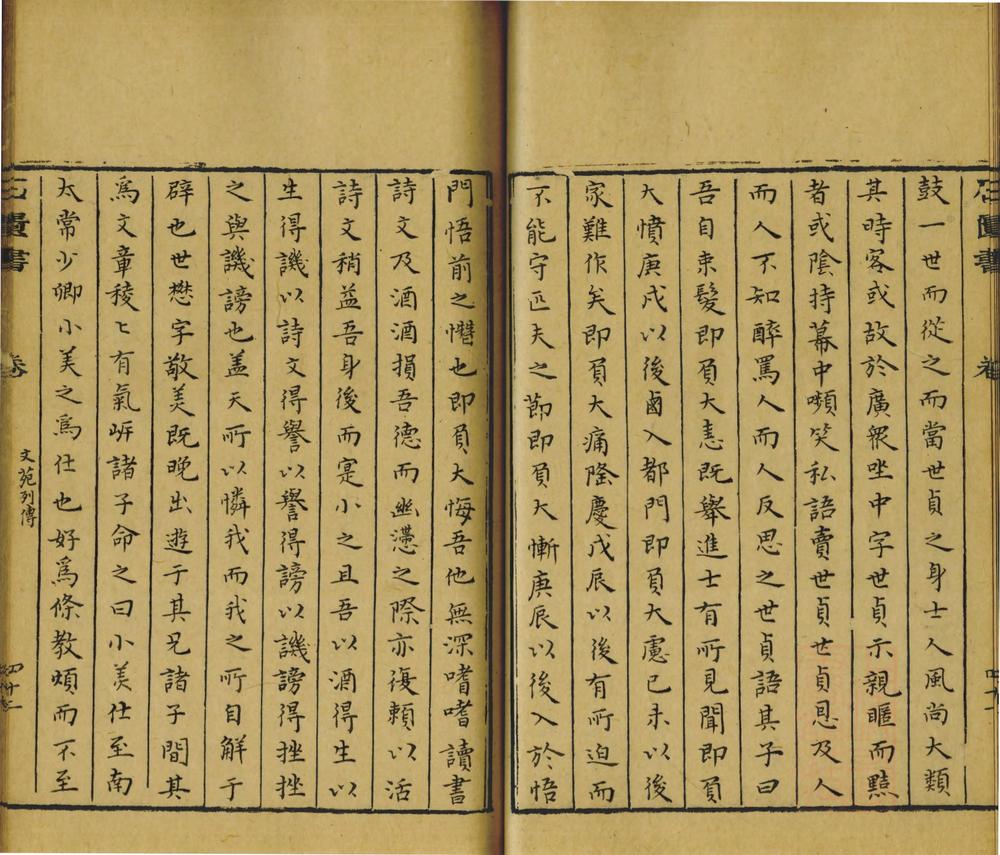 石匱書
卷
四十一
鼓一世而從之而當世貞之身士人風尚大類
其時客或故於廣衆坐中字世貞示親暱而黠
者或陰持幕中嚬笑私語賣世貞世貞恩及人
而人不知醉罵人而人反思之世貞語其子曰
吾自束髮即負大恚既舉進士有所見聞即負
大憤庚戌以後鹵入都門即負大慮已未以後
家難作矣即負大痛隆慶戊辰以後有所迫而
不能守匹夫之節即負大慚庚辰以後入於悟
門悟前之憯也即負大悔吾他無深嗜嗜讀書
詩文及酒酒損吾德而幽懣之際亦復賴以活
詩文稍益吾身後而寔小之且吾以酒得生以
生得譏以詩文得譽以譽得謗以譏謗得挫挫
之與譏謗也盖天所以憐我而我之所自解于
辟也世懋字敬美既晚出遊于其兄諸子間其
爲文章稜〻有氣岍諸子命之曰小美仕至南
太常少卿小美之爲仕也好爲條教煩而不至
石匱書
卷
文苑列傳